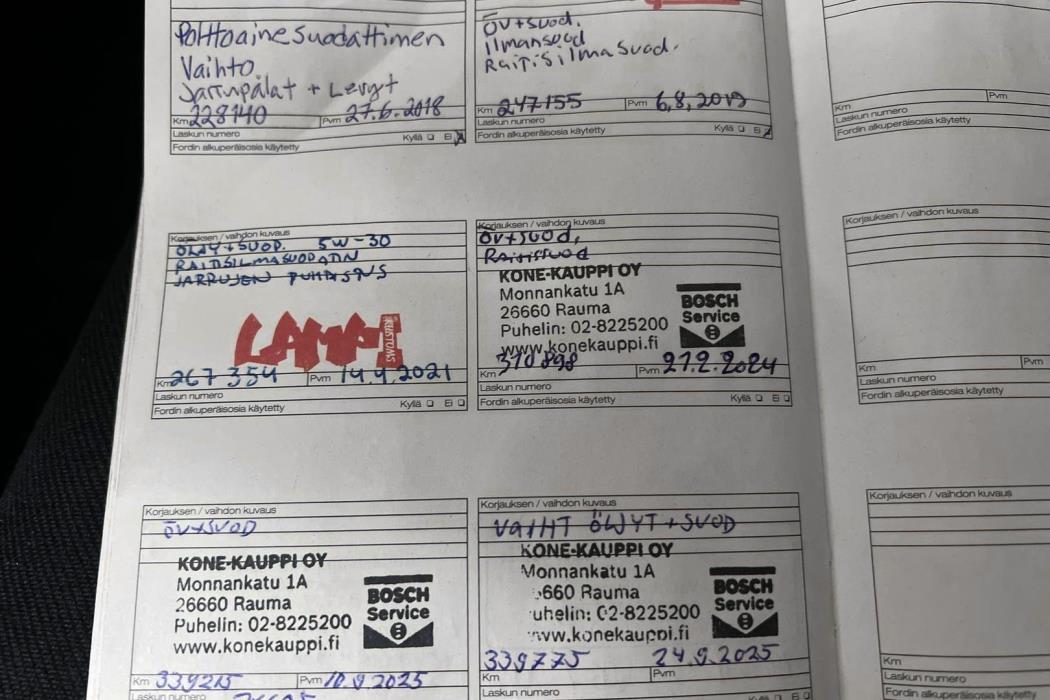 Polttoainesuodattimen
Vaihto
Jarrupalat + Levyt
Km 228140 Pvm 27.6.2018
Laskun numero
Fordin alkuperäisosia käytetty Kyllä Ei
ÖV+suod.
ilmansuod
Raitisilmasuod.
Km 247155 Pvm 6,8,2019
Laskun numero
Fordin alkuperäisosia käytetty Kyllä Ei
Km Pvm
Laskun numero
Fordin alkuperäisosia käytetty
Korjauksen / vaihdon kuvaus
ÖLJY+SUOD. 5W-30
RAITISILMASUODATIN
JARRUJEN PUHDISTUS
LAMPI
Km 267 354 Pvm 14.9.2021
Laskun numero
Fordin alkuperäisosia käytetty Kyllä Ei
Korjauksen / vaihdon kuvaus
ÖV+SUOD,
KONE-KAUPPI OY
Monnankatu 1A
26660 Rauma
Puhelin: 02-8225200
www.konekauppi.fi
BOSCH
Service
Km 310 898 Pvm 27.2.2024
Laskun numero
Fordin alkuperäisosia käytetty Kyllä Ei
Korjauksen / vaihdon kuvaus
Km Pvm
Laskun numero
Fordin alkuperäisosia käytetty
Korjauksen / vaihdon kuvaus
ÖV+SUOD
KONE-KAUPPI OY
Monnankatu 1A
26660 Rauma
Puhelin: 02-8225200
www.konekauppi.fi
BOSCH
Service
Km 339215 Pvm 10.9.2025
Laskun numero
Korjauksen / vaihdon kuvaus
VAIHT ÖLJYT+SUOD
KONE-KAUPPI OY
Monnankatu 1A
660 Rauma
uhelin: 02-8225200
www.konekauppi.fi
BOSCH
Service
339775 24.9.2025
Km Pvm
Laskun numero
Kyllä Ei
Korjauksen / vaihdon kuvaus
Km
Laskun numero
Fordin alkuperäisosia käytetty